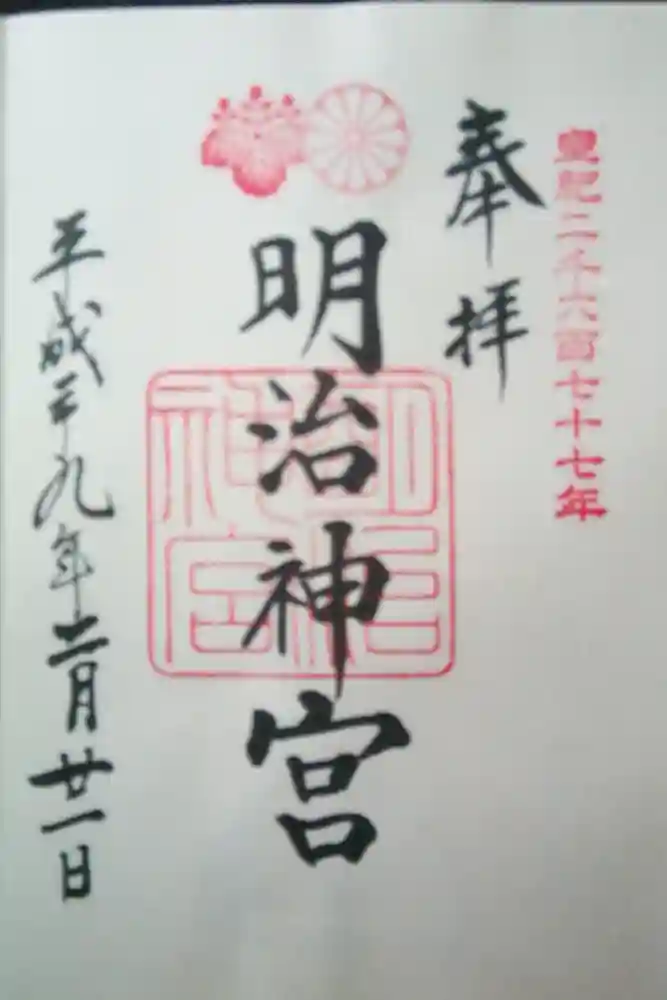 皇紀二千六百七十七年
奉拝
明治神宮
明治神宮
平成二十九年二月廿一日